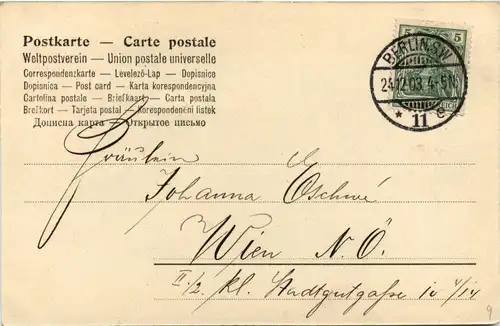 Postkarte — Carte postale
Weltpostverein — Union postale universelle
Correspondenzkarte — Levelező-Lap — Dopisnice
Dopisnica — Post card — Karta korespondencyjna
Cartolina postale — Briefkaart — Carta postala
Brefkort — Tarjeta postal — Korespondenčni listek
Дописна карта — Открытое письмо
5 5
BERLIN S.W.
24.12.03. 4-5N.
* 11 c.
Fräulein
Johanna
Wien N.Ö.
II/2. kl. Stadtgutgasse 4/14
9